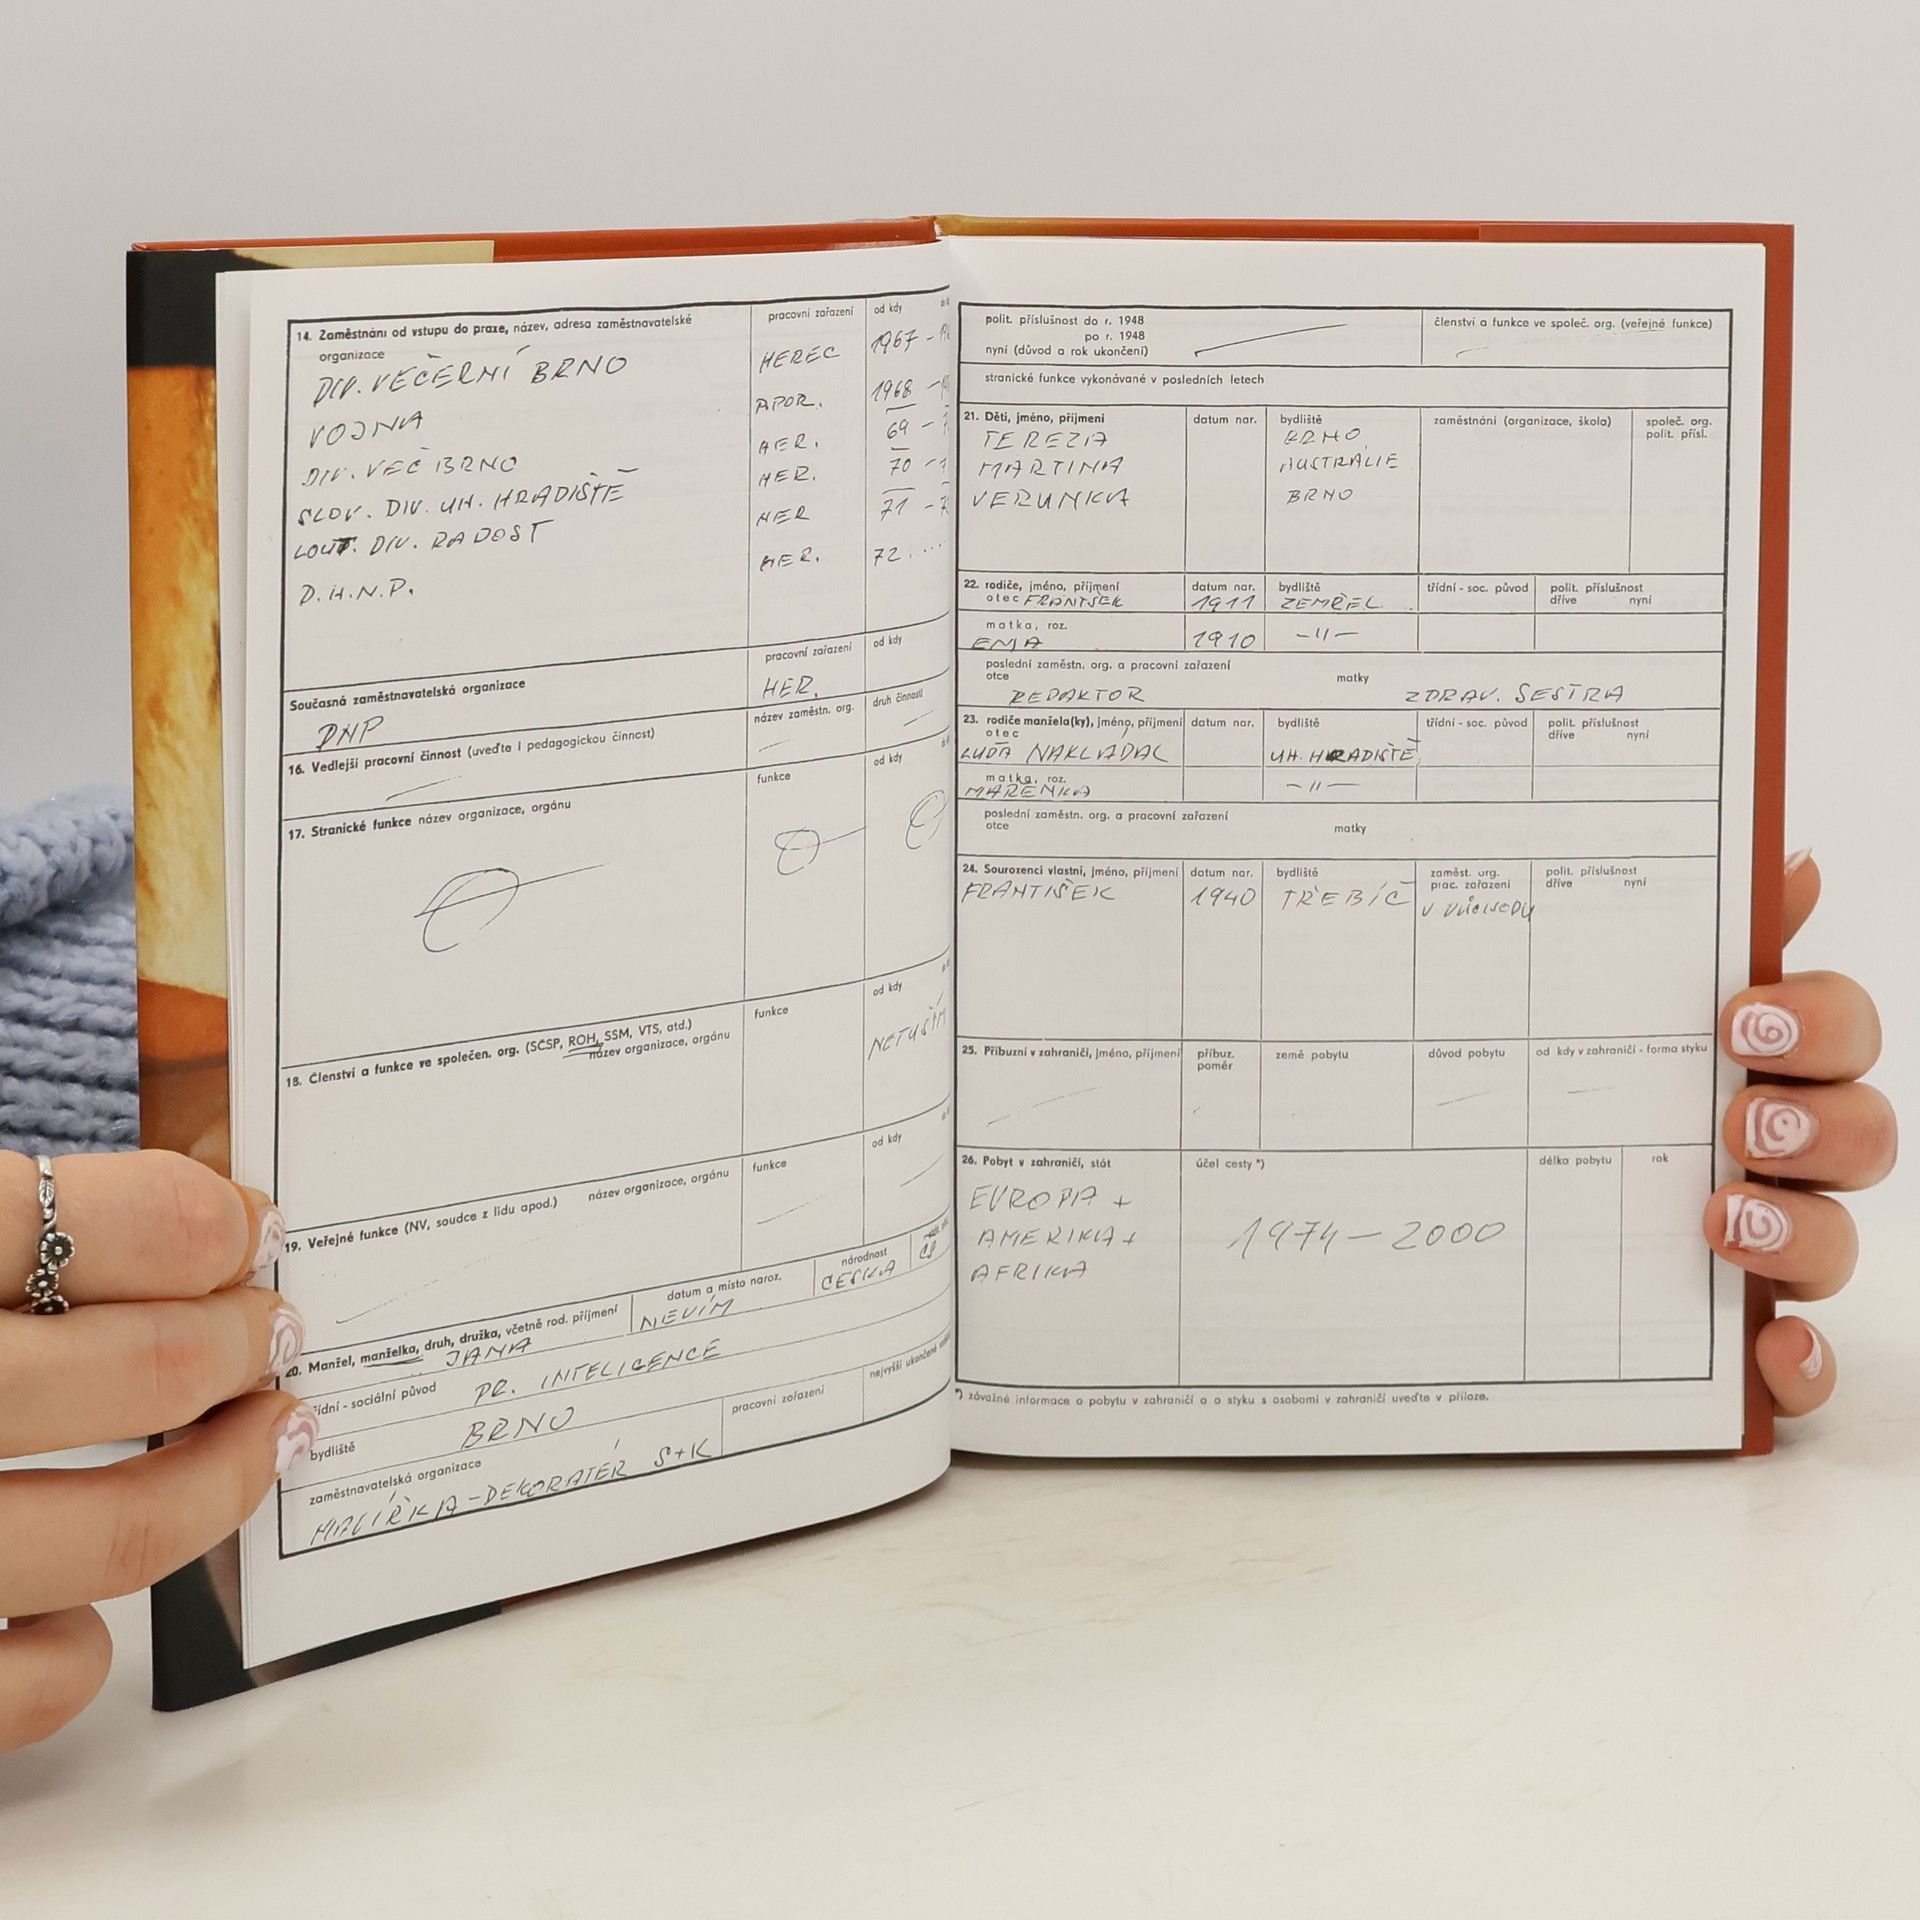 14. Zaměstnání od vstupu do praxe, název, adresa zaměstnavatelské
organizace
pracovní zařazení
od kdy
DIV. VEČERNÍ BRNO HEREC 1967 –
VOJNA APOR. 1968 –
DIV. VEČ BRNO HER. 69 –
SLOV. DIV. UH. HRADIŠTĚ HER. 70 –
LOUT. DIV. RADOST HER 71 –
D.H.N.P. HER. 72 .....
Současná zaměstnavatelská organizace
pracovní zařazení
od kdy
DNP HER.
16. Vedlejší pracovní činnost (uveďte i pedagogickou činnost)
název zaměstn. org.
druh činnosti
17. Stranické funkce název organizace, orgánu
funkce
od kdy
18. Členství a funkce ve společen. org. (SČSP, ROH, SSM, VTS, atd.)
název organizace, orgánu
funkce
od kdy
NETUŠÍM
19. Veřejné funkce (NV, soudce z lidu apod.) název organizace, orgánu
funkce
od kdy
20. Manžel, manželka, druh, družka, včetně rod. příjmení
JANA
datum a místo naroz.
NEVÍM
národnost
ČESKÁ
třídní - sociální původ
PR. INTELIGENCE
bydliště
BRNO
zaměstnavatelská organizace
pracovní zařazení
nejvyšší ukončené
MALÍŘKA – DEKORATÉR S+K
polit. příslušnost do r. 1948
po r. 1948
nyní (důvod a rok ukončení)
členství a funkce ve společ. org. (veřejné funkce)
stranické funkce vykonávané v posledních letech
21. Děti, jméno, příjmení datum nar. bydliště zaměstnání (organizace, škola) společ. org.
polit. přísl.
TEREZIA BRNO
MARTINA AUSTRALIE
VERUNKA BRNO
22. rodiče, jméno, příjmení datum nar. bydliště třídní - soc. původ polit. příslušnost
dříve nyní
otec FRANTIŠEK 1911 ZEMŘEL
matka, roz.
EMA 1910 –11–
poslední zaměstn. org. a pracovní zařazení
otce matky
REDAKTOR ZDRAV. SESTRA
23. rodiče manžela(ky), jméno, příjmení datum nar. bydliště třídní - soc. původ polit. příslušnost
otec dříve nyní
LUĎA NAKLÁDAL UH. HRADIŠTĚ
matka, roz.
MAŘENKA –11–
poslední zaměstn. org. a pracovní zařazení
otce matky
24. Sourozenci vlastní, jméno, příjmení datum nar. bydliště zaměst. org. polit. příslušnost
prac. zařazení dříve nyní
FRANTIŠEK 1940 TŘEBÍČ
25. Příbuzní v zahraničí, jméno, příjmení příbuz. země pobytu důvod pobytu od kdy v zahraničí - forma styku
poměr
26. Pobyt v zahraničí, stát účel cesty *) délka pobytu rok
EVROPA +
AMERIKA + 1974 – 2000
AFRIKA
*) závažné informace o pobytu v zahraničí a o styku s osobami v zahraničí uveďte v příloze.